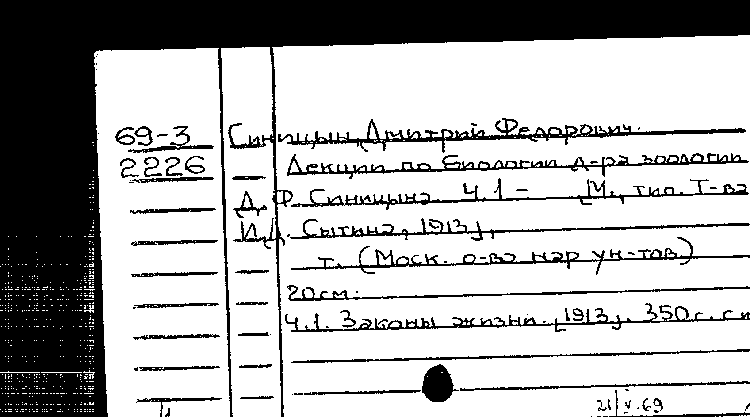 69-3 Синицын, Дмитрий Федорович.
2226 Лекции по биологии д-ра зоологии
Д. Ф. Синицына. Ч.1 - [М., тип. Т-ва
И.Д. Сытина, 1913],
т. (Моск. о-во нар ун-тов.)
20см.
Ч.1. Законы жизни. [1913]. 350 с. с и
21/V.69